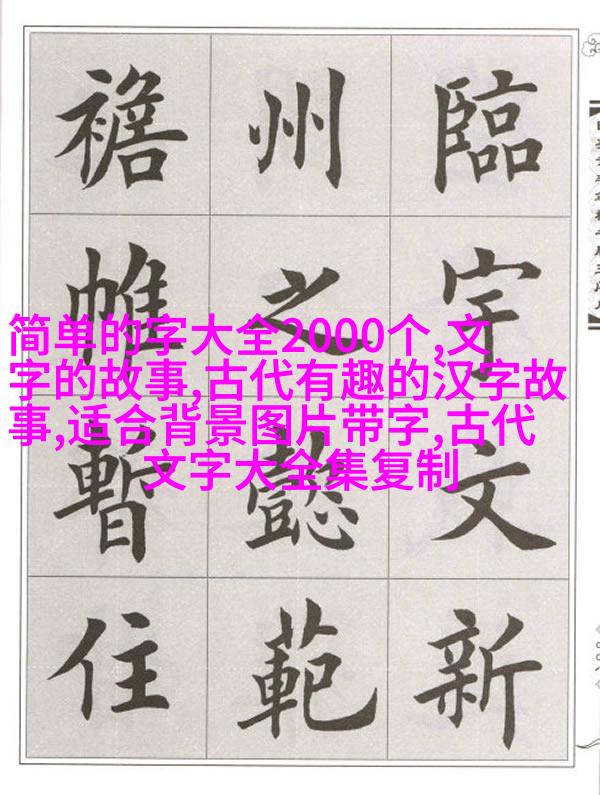 臨宇文新
州之懿範
襜帷暫住
简单的字大全2000个,文
字的故事,古代有趣的汉字故
事,适合背景图片带字,古代
文字大全集复制